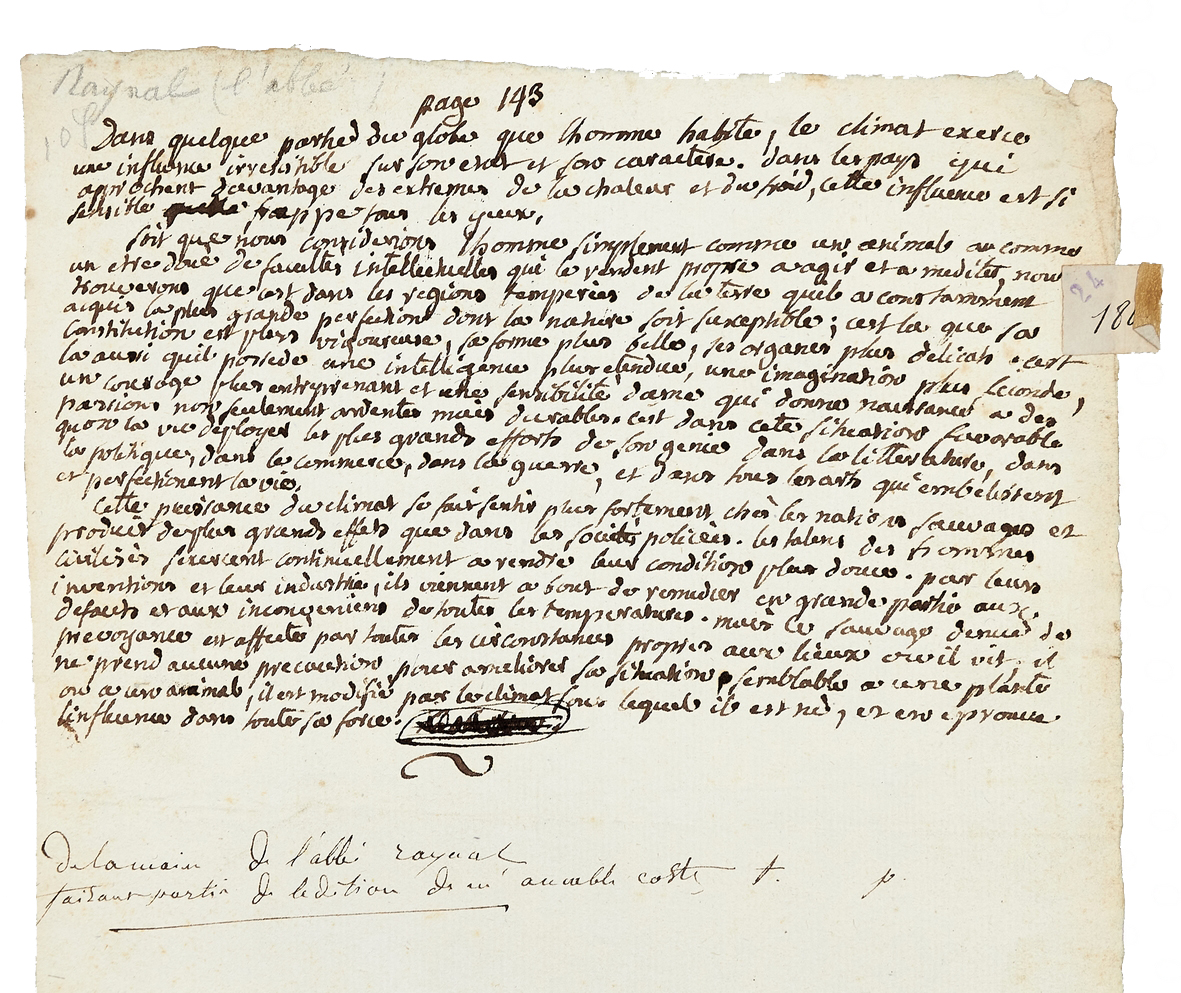 Raynal (l'abbé)
page 143
Dans quelque partie du globe que lhomme habite, le climat exerce
une influence irresistible sur son etat et son caractere. dans les pays qui
approchent davantage des extremes de la chaleur et du froid, cette influence est si
sensible frappe tous les yeux.
soit que nous considerions lhomme simplement comme un animal ou comme
un etre doué de facultes intellectuelles qui le rendent propre a agir et a mediter, nous
trouverons que cest dans les regions temperées de la terre quil a constamment
acquis la plus grande perfection dont la nature soit suceptible; cest la que sa
constitution est plus vigoureuse, sa forme plus belle, ses organes plus délicats. cest
la aussi quil possede une intelligence plus etendue, une imagination plus feconde,
un courage plus entreprenant et une sensibilité dame qui donne naissance a des
passions non seulement ardentes mais durables. cest dans cete situation favorable
quon la vu deployer les plus grands efforts de son genie dans la litterature, dans
la politique, dans le commerce, dans la guerre, et dans tous les arts qui embelissent
et perfectionent la vie.
Cette puissance du climat se fait sentir plus fortement chés les nations sauvages et
produit de plus grands effets que dans les societés policées. les talens des hommes
civilisés sexercent continuellement a rendre leur condition plus douce. par leurs
inventions et leur industrie, ils viennent a bout de remedier en grande partie aux
defauts et aux inconveniens de toutes les temperatures. mais le sauvage denué de
prevoyance est affecté par toutes les circonstances propres aux lieux ou il vit. il
ne prend aucune precaution pour ameliorer sa situation. semblable a une plante
ou a un animal, il est modifié par le climat sous lequel il est né, et en eprouve
linfluence dans toute sa force.
de la main de l'abbé raynal
faisant partie de ledition de mr amable coste t. p.
24
180